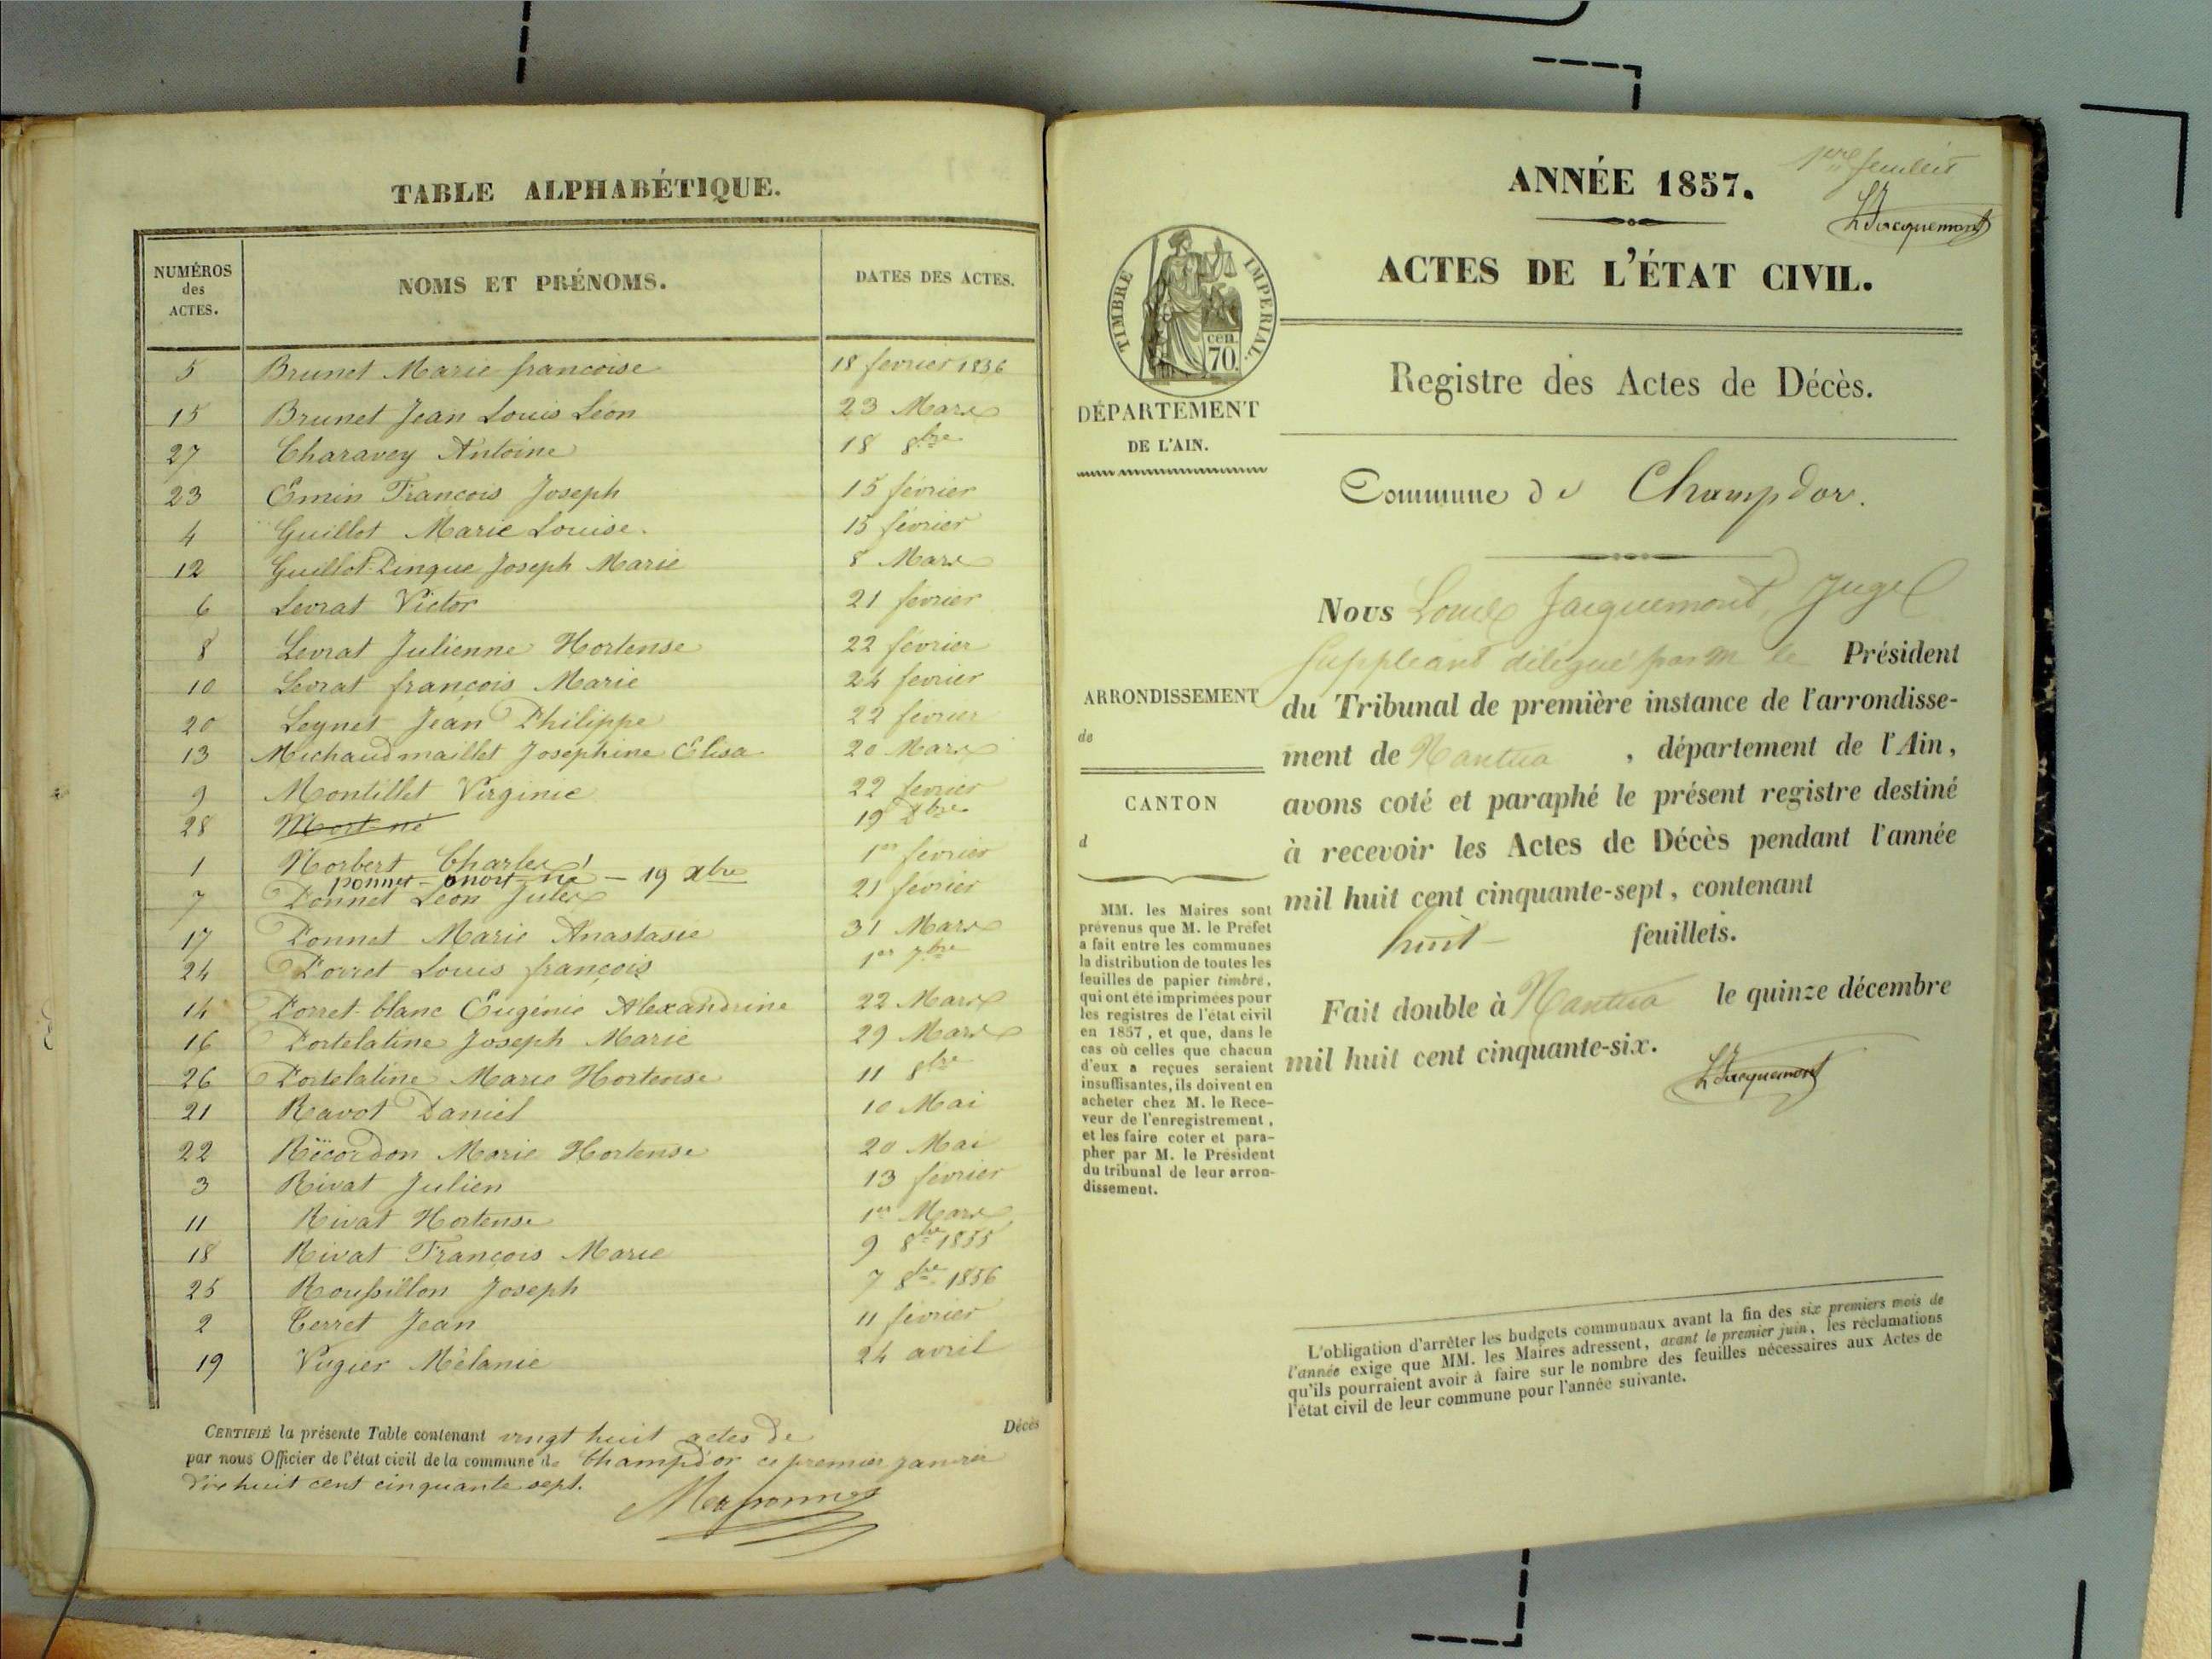 TABLE ALPHABÉTIQUE.
NUMÉROS des ACTES. NOMS ET PRÉNOMS. DATES DES ACTES.
5 Brunet Marie francoise 18 fevrier 1856
15 Brunet Jean Louis Léon 23 Mars
27 Charavey Antoine 18 8bre
23 Emin François Joseph 15 février
4 Guillot Marie Louise. 15 février
12 Guillot-Pingue Joseph Marie 8 Mars
6 Levrat Victor 21 fevrier
8 Levrat Julienne Hortense 22 février
10 Levrat françois Marie 24 fevrier
20 Leynet Jean Philippe 22 fevrier
13 Michaudmaillet Joséphine Elisa 20 Mars
9 Montillet Virginie 22 fevrier
28 Mort-né 19 Xbre
1 Norbert Charles 1er février
Ponnet - mort-né - 19 Xbre
7 Ponnet Léon Jules 21 fevrier
17 Ponnet Marie Anastasie 31 Mars
24 Porret Louis françois 1er 7bre
14 Porret-blanc Eugénie Alexandrine 22 Mars
16 Portelatine Joseph Marie 29 Mars
26 Portelatine Marie Hortense 11 8bre
21 Ravot Daniel 10 Mai
22 Récordon Marie Hortense 20 Mai
3 Rivat Julien 13 février
11 Rivat Hortense 1er Mars
18 Rivat François Marie 9 8bre 1855
25 Roussillon Joseph 7 8bre 1856
2 Terret Jean 11 février
19 Vugier Mélanie 24 avril
CERTIFIÉ la présente Table contenant vingt huit actes de Décès
par nous Officier de l'état civil de la commune de Champdor ce premier janvier
dix huit cent cinquante sept.
ANNÉE 1857.
1er feuillet
LJacquemont
ACTES DE L'ÉTAT CIVIL.
TIMBRE IMPERIAL.
cen.
70.
Registre des Actes de Décès.
DÉPARTEMENT
DE L'AIN.
Commune de Champdor.
Nous Louis Jacquemont, Juge
Suppléant délégué par M le Président
ARRONDISSEMENT
de
du Tribunal de première instance de l'arrondisse-
ment de Nantua, département de l'Ain,
CANTON
d
avons coté et paraphé le présent registre destiné
à recevoir les Actes de Décès pendant l'année
mil huit cent cinquante-sept, contenant
huit feuillets.
Fait double à Nantua le quinze décembre
mil huit cent cinquante-six.
LJacquemont
MM. les Maires sont
prévenus que M. le Préfet
a fait entre les communes
la distribution de toutes les
feuilles de papier timbré,
qui ont été imprimées pour
les registres de l'état civil
en 1857, et que, dans le
cas où celles que chacun
d'eux a reçues seraient
insuffisantes, ils doivent en
acheter chez M. le Rece-
veur de l'enregistrement,
et les faire coter et para-
pher par M. le Président
du tribunal de leur arron-
dissement.
L'obligation d'arrêter les budgets communaux avant la fin des six premiers mois de
l'année exige que MM. les Maires adressent, avant le premier juin, les réclamations
qu'ils pourraient avoir à faire sur le nombre des feuilles nécessaires aux Actes de
l'état civil de leur commune pour l'année suivante.